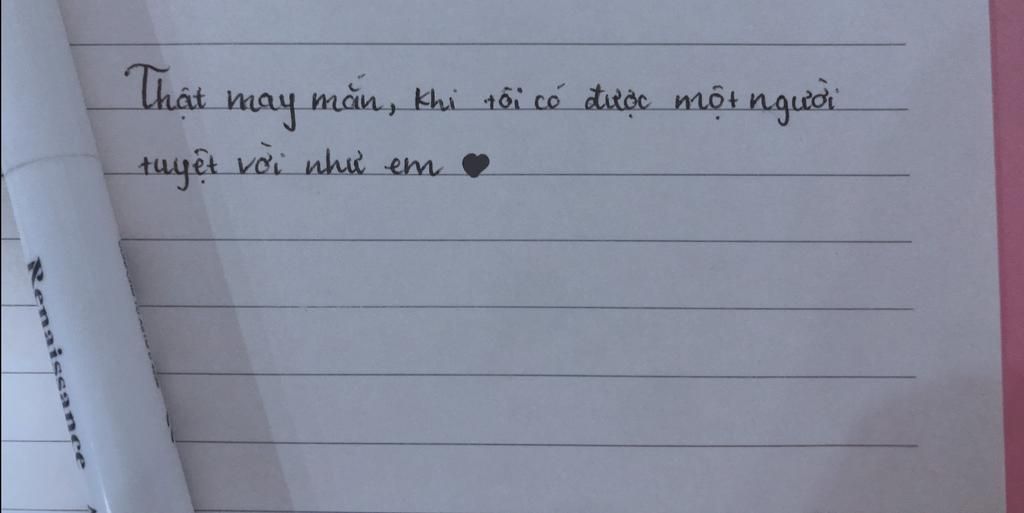 Thật may mắn, khi tôi có được một người
tuyệt vời như em ♥
Renaissance